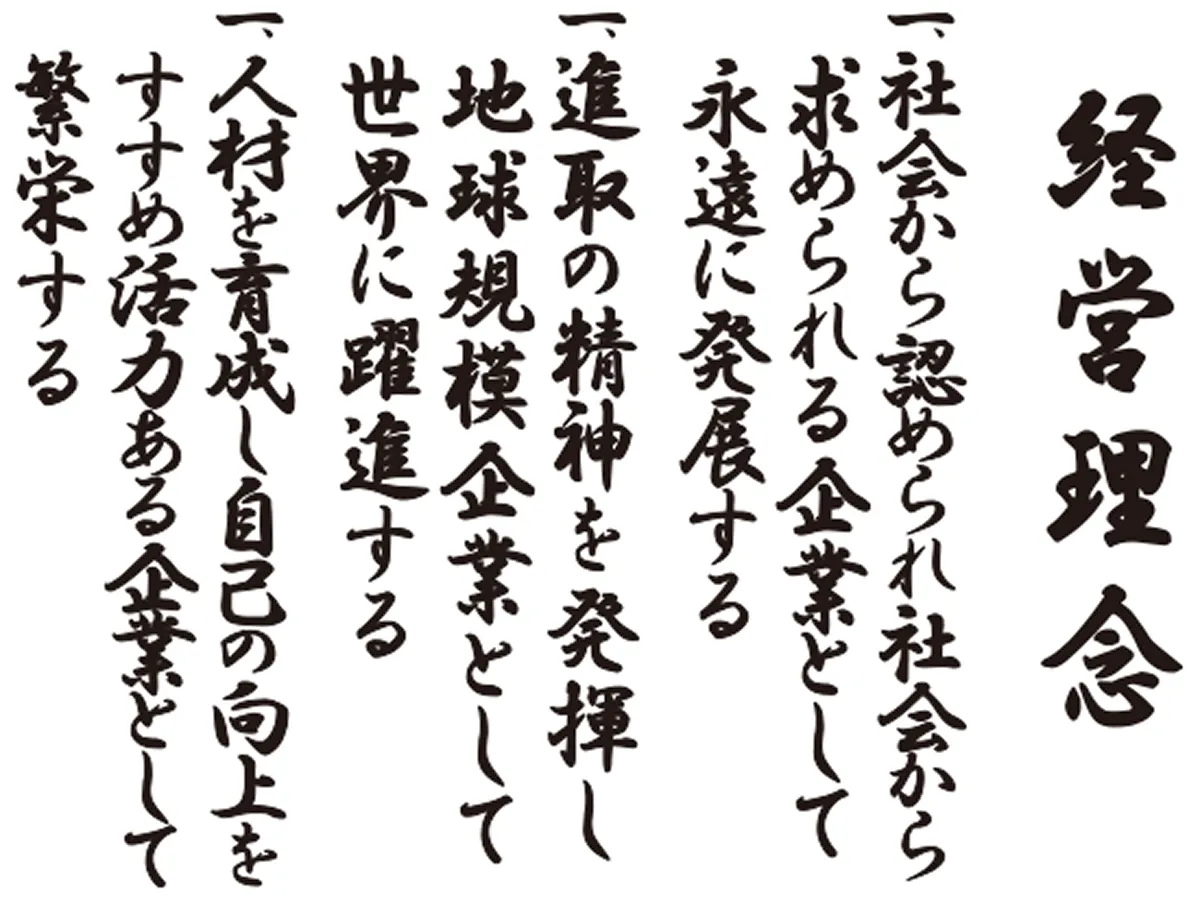 経営理念
一、社会から認められ社会から
求められる企業として
永遠に発展する
一、進取の精神を発揮し
地球規模企業として
世界に躍進する
一、人材を育成し自己の向上を
すすめ活力ある企業として
繁栄する